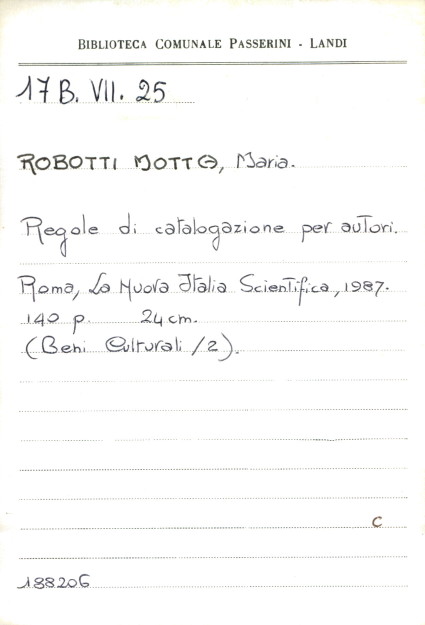 BIBLIOTECA COMUNALE PASSERINI - LANDI
17 B. VII. 25
ROBOTTI MOTTA, Maria.
Regole di catalogazione per autori.
Roma, La Nuova Italia Scientifica, 1987.
140 p. 24 cm.
(Beni Culturali / 2).
C
188206